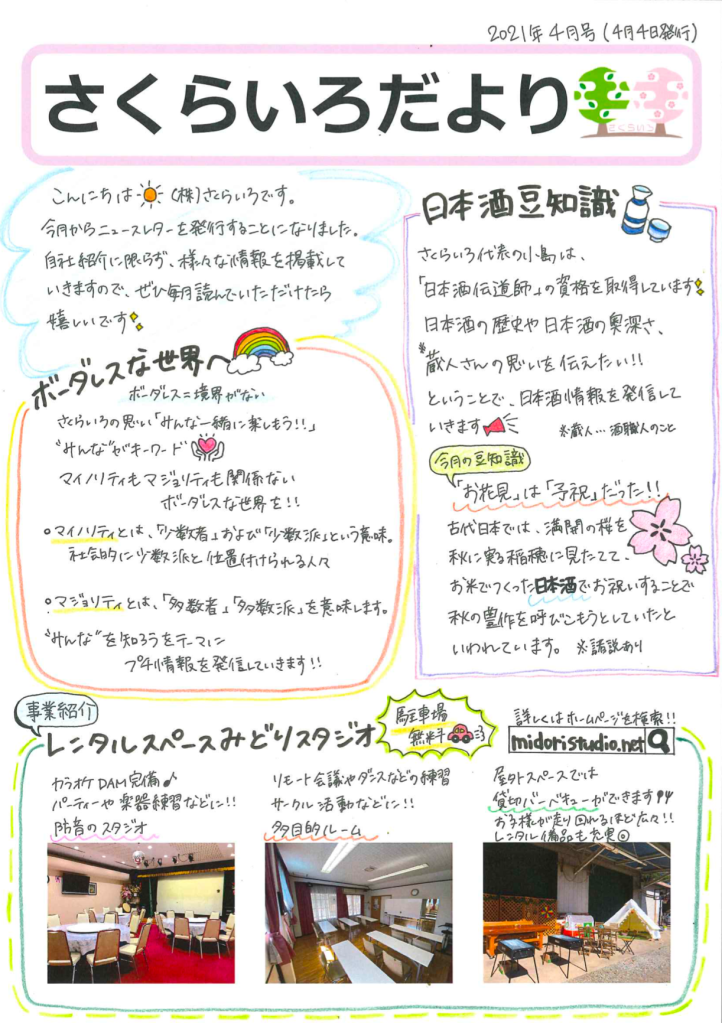 2021年4月号(4月4日発行)
さくらいろだより
さくらいろ
こんにちは (株)さくらいろです。
今月からニュースレターを発行することになりました。
自社紹介に限らず、様々な情報を掲載して
いきますので、ぜひ毎月読んでいただけたら
嬉しいです
ボーダレスな世界へ
ボーダレス=境界がない
さくらいろの思い「みんな一緒に楽しもう!!」
"みんな"がキーワード
マイノリティもマジョリティも関係ない
ボーダレスな世界を!!
○マイノリティとは、「少数者」および「少数派」という意味。
社会的に少数派と位置付けられる人々
○マジョリティとは、「多数者」「多数派」を意味します。
"みんな"を知ろうをテーマに
プチ情報を発信していきます!!
日本酒豆知識
さくらいろ代表の小島は、
「日本酒伝道師」の資格を取得しています
日本酒の歴史や日本酒の奥深さ、
*蔵人さんの思いを伝えたい!!
ということで、日本酒情報を発信して
いきます ※蔵人…酒職人のこと
今月の豆知識
「お花見」は「予祝」だった!!
古代日本では、満開の桜を
秋に実る稲穂に見たてて、
お米でつくった日本酒でお祝いすることで
秋の豊作を呼びこもうとしていたと
いわれています。 ※諸説あり
事業紹介
レンタルスペースみどりスタジオ
駐車場
無料
詳しくはホームページを検索!!
midoristudio.net
カラオケDAM完備♪
パーティーや楽器練習などに!!
防音のスタジオ
リモート会議やダンスなどの練習
サークル活動などに!!
多目的ルーム
屋外スペースでは
貸切バーベキューができます
お子様が走り回れるほど広々!!
レンタル備品も充実◎